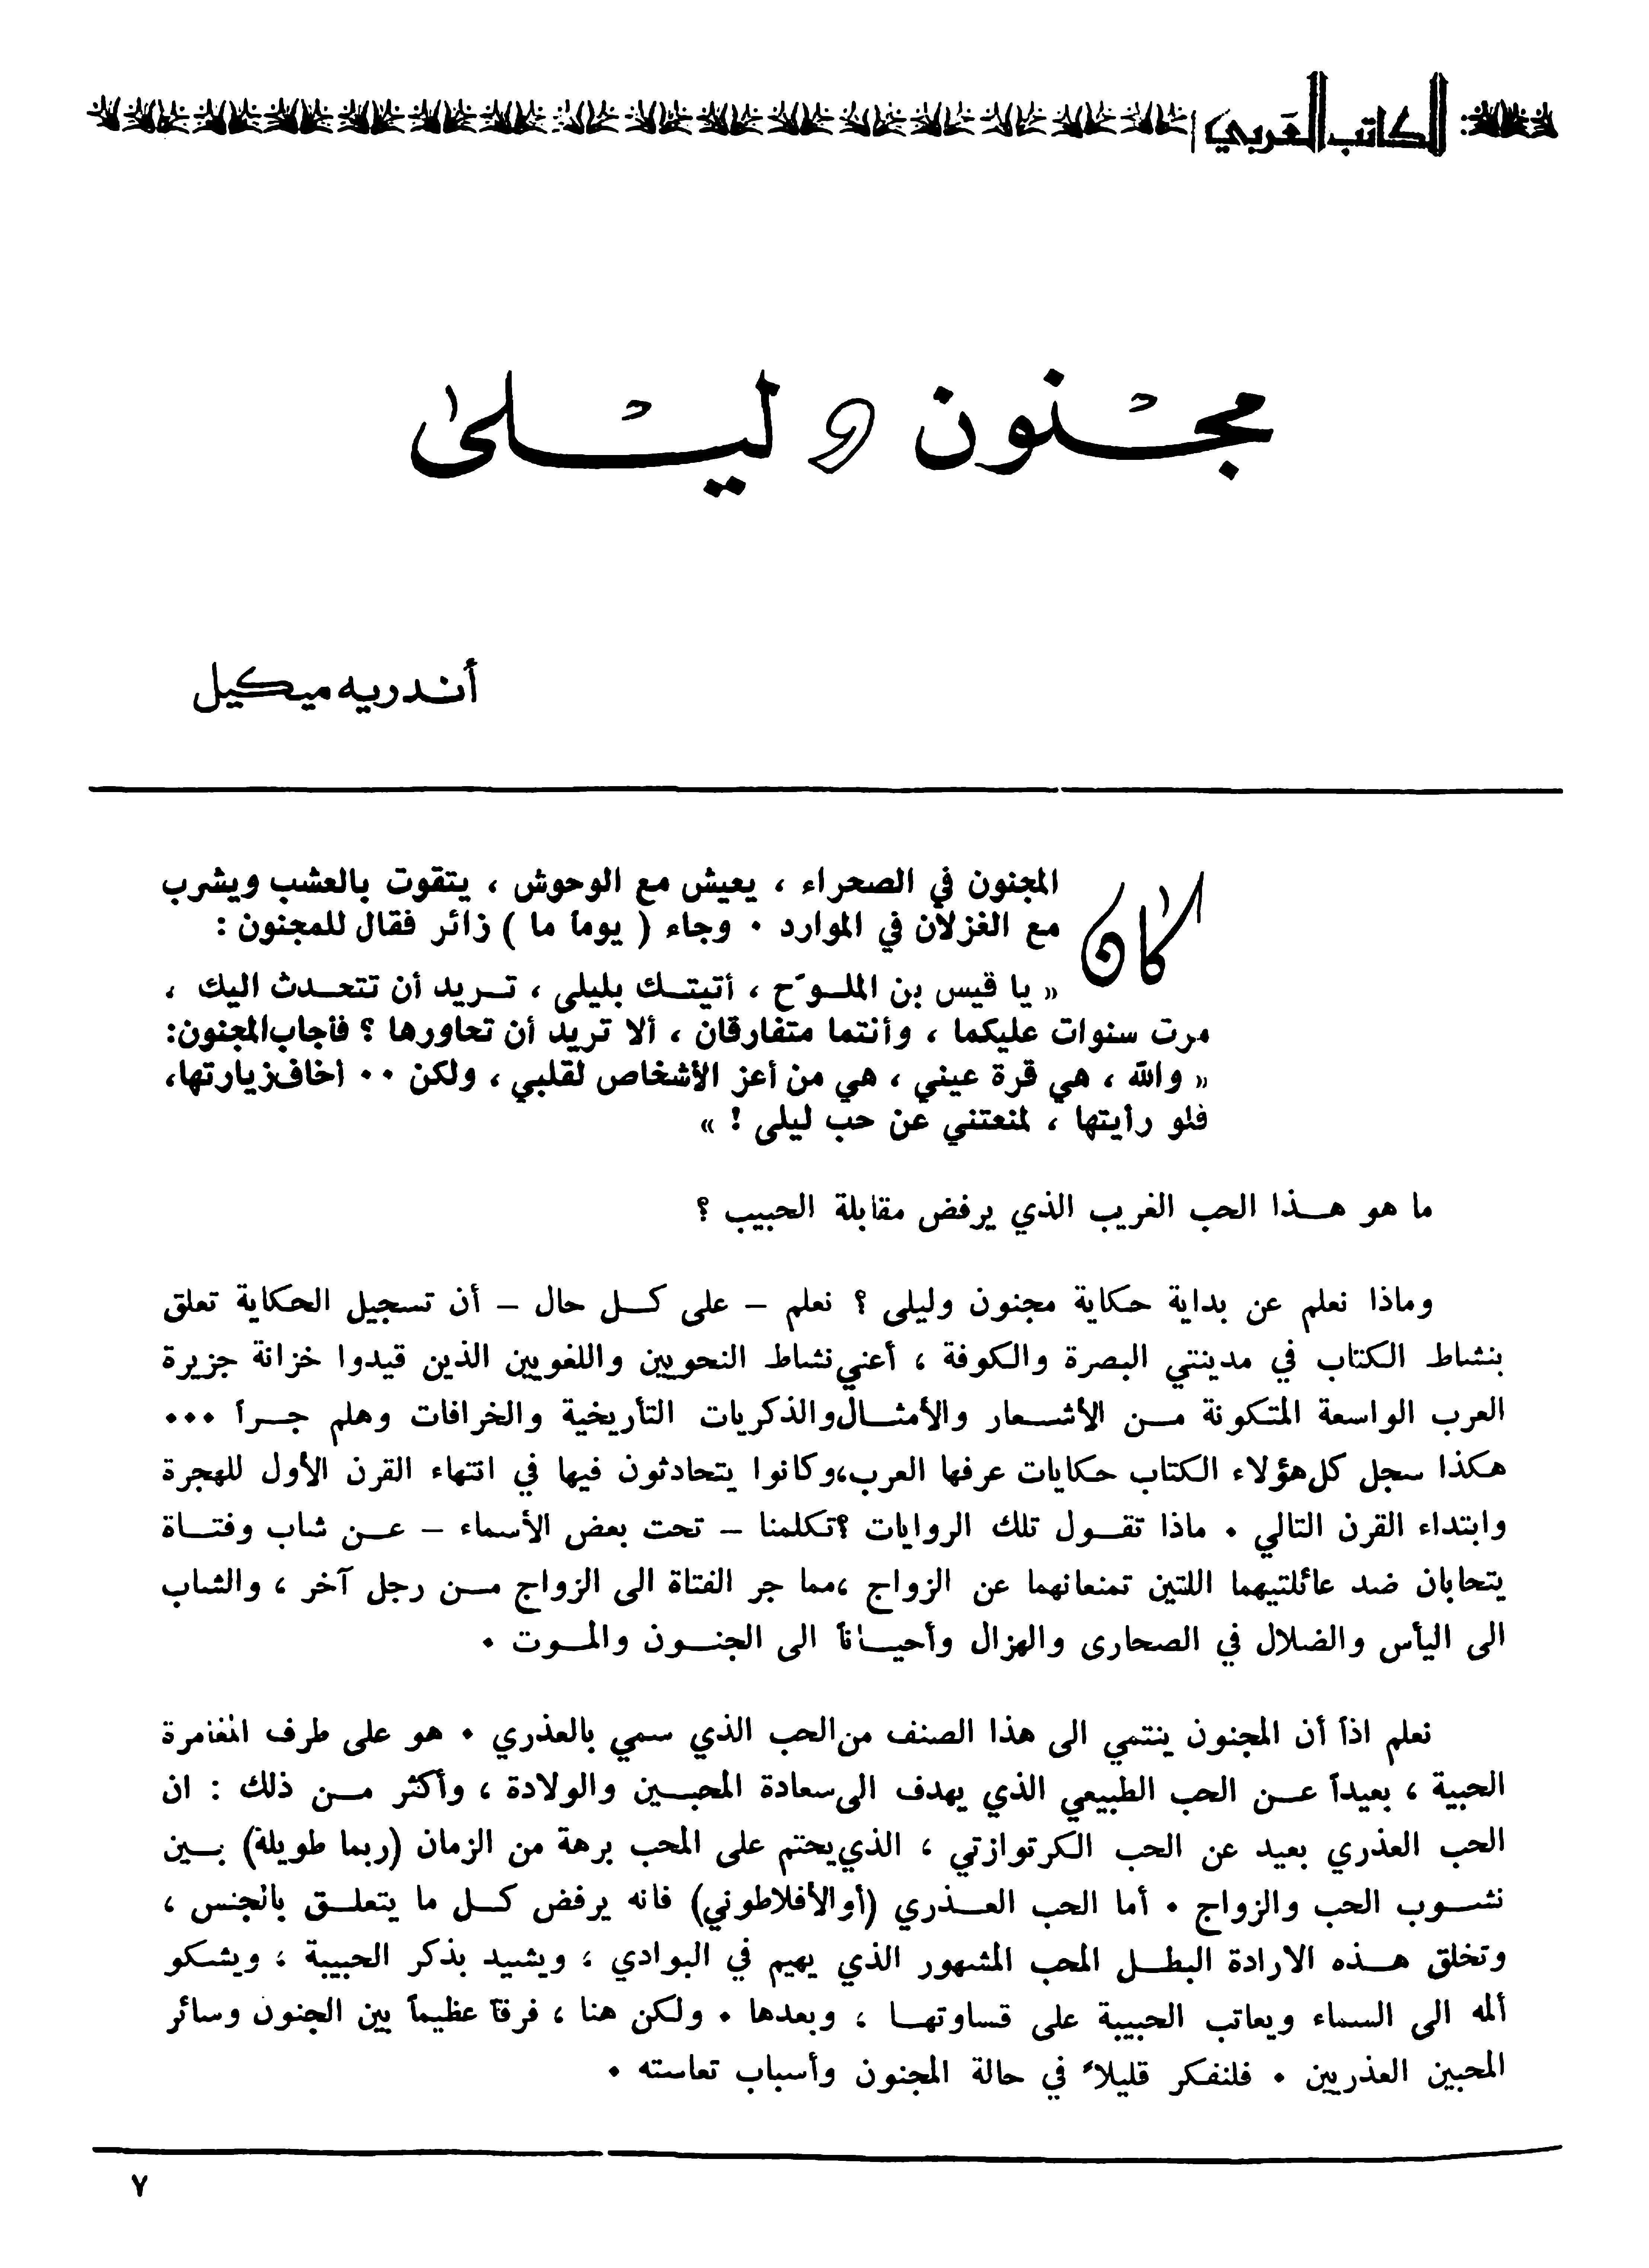 الكاتب العربي
مجنون و ليلى
أندريه ميكيل
كان المجنون في الصحراء ، يعيش مع الوحوش ، يتقوت بالعشب ويشرب
مع الغزلان في الموارد ٠ وجاء ( يوماً ما ) زائر فقال للمجنون :
« يا قيس بن الملوّح ، أتيتك بليلى ، تريد أن تتحدث اليك ،
مرت سنوات عليكما ، وأنتما متفارقان ، ألا تريد أن تحاورها ؟ فأجاب المجنون:
« والله ، هي قرة عيني ، هي من أعز الأشخاص لقلبي ، ولكن ٠٠ أخاف زيارتها،
فلو رأيتها ، لمنعتني عن حب ليلى ! »
ما هو هذا الحب الغريب الذي يرفض مقابلة الحبيب ؟
وماذا نعلم عن بداية حكاية مجنون وليلى ؟ نعلم – على كل حال – أن تسجيل الحكاية تعلق
بنشاط الكتاب في مدينتي البصرة والكوفة ، أعني نشاط النحويين واللغويين الذين قيدوا خزانة جزيرة
العرب الواسعة المتكونة من الأشعار والأمثال والذكريات التأريخية والخرافات وهلم جراً ٠٠٠
هكذا سجل كل هؤلاء الكتاب حكايات عرفها العرب،وكانوا يتحادثون فيها في انتهاء القرن الأول للهجرة
وابتداء القرن التالي ٠ ماذا تقول تلك الروايات ؟تكلمنا – تحت بعض الأسماء – عن شاب وفتاة
يتحابان ضد عائلتيهما اللتين تمنعانهما عن الزواج ،مما جر الفتاة الى الزواج من رجل آخر ، والشاب
الى اليأس والضلال في الصحارى والهزال وأحياناً الى الجنون والموت ٠
نعلم اذاً أن المجنون ينتمي الى هذا الصنف من الحب الذي سمي بالعذري ٠ هو على طرف المغامرة
الحبية ، بعيداً عن الحب الطبيعي الذي يهدف الى سعادة المحبين والولادة ، وأكثر من ذلك : ان
الحب العذري بعيد عن الحب الكرتوازتي ، الذي يحتم على المحب برهة من الزمان (ربما طويلة) بين
نشوب الحب والزواج ٠ أما الحب العذري (أو الأفلاطوني) فانه يرفض كل ما يتعلق بالجنس ،
وتخلق هذه الارادة البطل المحب المشهور الذي يهيم في البوادي ، ويشيد بذكر الحبيبة ، ويشكو
ألمه الى السماء ويعاتب الحبيبة على قساوتها ، وبعدها ٠ ولكن هنا ، فرقاً عظيماً بين الجنون وسائر
المحبين العذريين ٠ فلنفكر قليلاً في حالة المجنون وأسباب تعاسته ٠
٧